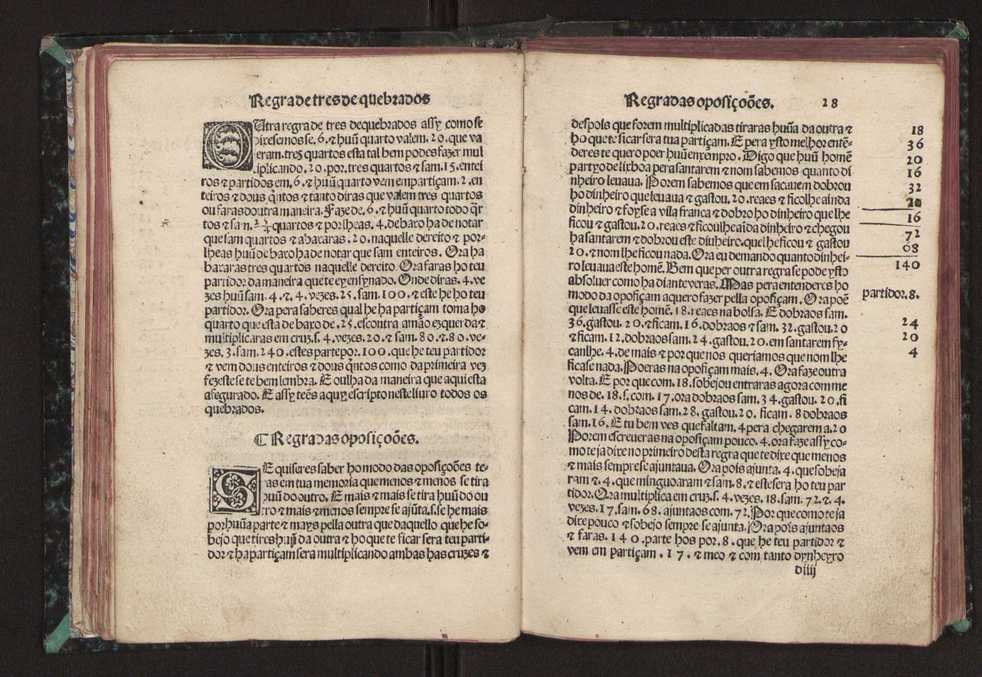 Regra de tres de quebrados
OUtra regra de tres de quebrados assy como se
diresemos se .6. ⁊ huũ quarto valem .20. que va
leram .tres quartos esta tal bem podes fazer mul
tiplicando .20. por .tres quartos ⁊ sam .15. entei
ros ⁊ partidos em .6. ⁊ huũ quarto vem em partiçam .2. en
teiros ⁊ dous q̃ntos ⁊ tanto diras que valem tres quartos
ou faras doutra maneira. Faze de .6. ⁊ huũ quarto todo q̃r
tos ⁊ sam .25/4 quartos ⁊ por lheas .4. debaxo ha de notar
que sam quartos ⁊ abaxaras .20. naquelle dereito ⁊ po-
lheas huũ debaxo ha de notar que sam enteiros. Ora ha
baxaras tres quartos naquelle dereito Ora faras ho teu
partidor da maneira que te ey ensynado. Onde diras .4. ve
zes huũ sam .4. ⁊ .4. vezes .25. sam .100. ⁊ este he ho teu
partidor. Ora pera saberes qual he ha partiçam toma ho
quarto que esta de baxo de .25. es contra a mão ezquerda ⁊
multiplicaras em cruz .s. 4. vezes .20. ⁊ sam .80. ⁊ .80. ve-
zes .3. sam .240. estes parte por .100. que he teu partidor
⁊ vem dous enteiros ⁊ dous q̃ntos como da primeira vez
fezeste se te bem lembra. E oulha da maneira que aqui esta
afegurado. E assy teẽs aquy escripto neste liuro todos os
quebrados.
☾ Regra das oposiçoões.
SE quiseres saber ho modo das oposiçoões te-
ras em tua memoria que menos ⁊ menos se tira
huũ do outro. E mais ⁊ mais se tira huũ do ou
tro ⁊ mais ⁊ menos sempre se ajũta .s. se he mais
por huũa parte ⁊ mays pella outra que daquello que he so-
bejo que tires huũ da outra ⁊ ho que te ficar sera teu parti-
dor ⁊ ha partiçam sera multiplicando ambas has cruzes ⁊
Regra das oposiçoões. 28
despois que forem multiplicadas tiraras huũa da outra ⁊
ho que te ficar sera tua partiçam. E pera ysto melhor entẽ-
deres te quero poer huũ enxempro. Digo que huũ homẽ
partyo de lisboa pera santarem ⁊ nom sabemos quanto di
nheiro leuaua. Porem sabemos que em sacauem dobrou
ho dinheiro que leuaua ⁊ gastou .20. reaes ⁊ ficolhe ainda
dinheiro ⁊ foy se a villa franca ⁊ dobro ho dinheiro que lhe
ficou ⁊ gastou .20. reaes ⁊ ficoulhe aida dinheiro ⁊ chegou
ha santarem ⁊ dobrou este dinheiro. que lhe ficou ⁊ gastou
20. ⁊ nom lhe ficou nada. Ora eu demando quanto dinhei-
ro leuaua este homẽ. Bem que per outra regra se pode ysto
absoluer como ha diante veras. Mas pera entenderes ho
modo da oposiçam a quero fazer pella oposiçam. Ora poẽ
que leuasse este homẽ .18. reaes na bolsa. E dobraos sam.
36. gastou .20. ⁊ ficam .16. dobraos ⁊ sam .32. gastou .20
⁊ ficam .12. dobraos sam .24. gastou .20. em santarem fy-
canlhe .4. de mais ⁊ por que nos queriamos que nom lhe
ficase nada. Poeras na oposiçam mais .4. Ora faze outra
volta. E por que com .18. sobejou entraras agora com me
nos de .18. s. com .17. ora dobraos sam .34. gastou .20. fi
cam .14. dobraos sam .28. gastou .20. ficam .8 dobraos
sam .16. E tu bem ves que faltam .4 pera chegarem a .20
Porem escreueras na oposiçam pouco .4. ora faze assy co-
mo te ja dixe no primeiro desta regra que te dixe que menos
⁊ mais sempre se ajuntaua. Ora pois ajunta .4. que sobeja
ram ⁊ .4. que minguoaram ⁊ sam .8. ⁊ este sera ho teu par
tidor. Ora multiplica em cruz .s. 4. vezes .18. sam .72. ⁊ .4.
vezes .17. sam .68. ajunta os com .72. Por que como te ja
dixe pouco ⁊ sobejo sempre se ajunta. Ora pois ajunta os
⁊ faras .140. parte hos por .8. que he teu partidor ⁊
vem em partiçam .17. ⁊ meo ⁊ com tanto dynheyro
diiij
18
36
20
16
32
20
16
72
68
140
partidor .8.
24
20
4